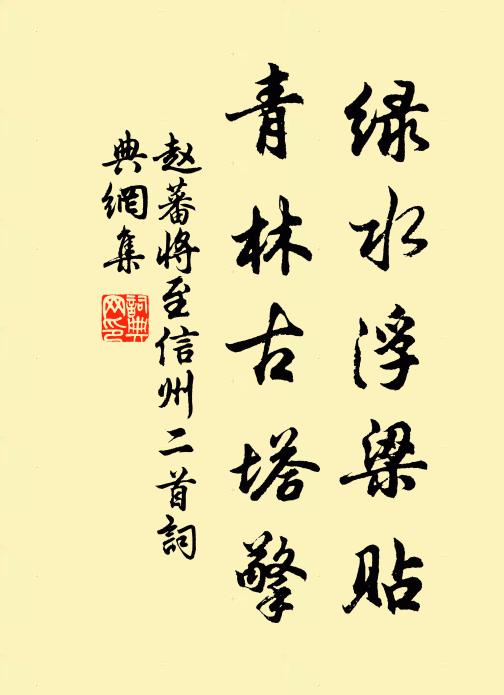 绿水浮梁贴
青林古塔擎
赵蕃将至信州二首詞
典網集
詞典
网印